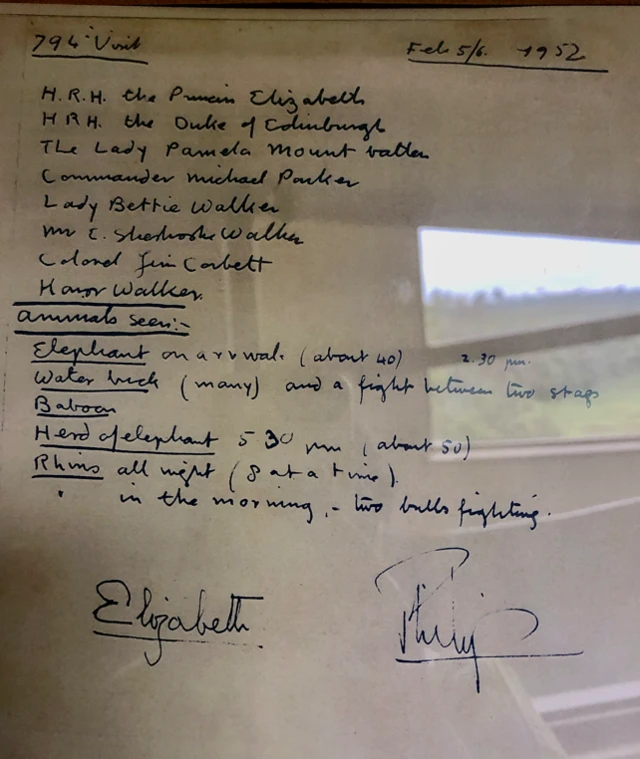 794th Visit
Feb 5/6. 1952
H.R.H. the Princess Elizabeth
HRH. the Duke of Edinburgh
The Lady Pamela Mountbatten
Commander Michael Parker
Lady Bettie Walker
Mr E. Sherbrooke Walker
Colonel Jim Corbett
Honor Walker.
Animals seen:-
Elephant on arrival. (about 40) 2.30 pm.
Water buck (many) and a fight between two stags
Baboon
Herd of elephant 5 30 pm (about 50)
Rhino all night (8 at a time).
" in the morning, - two bulls fighting.
Elizabeth
Philip